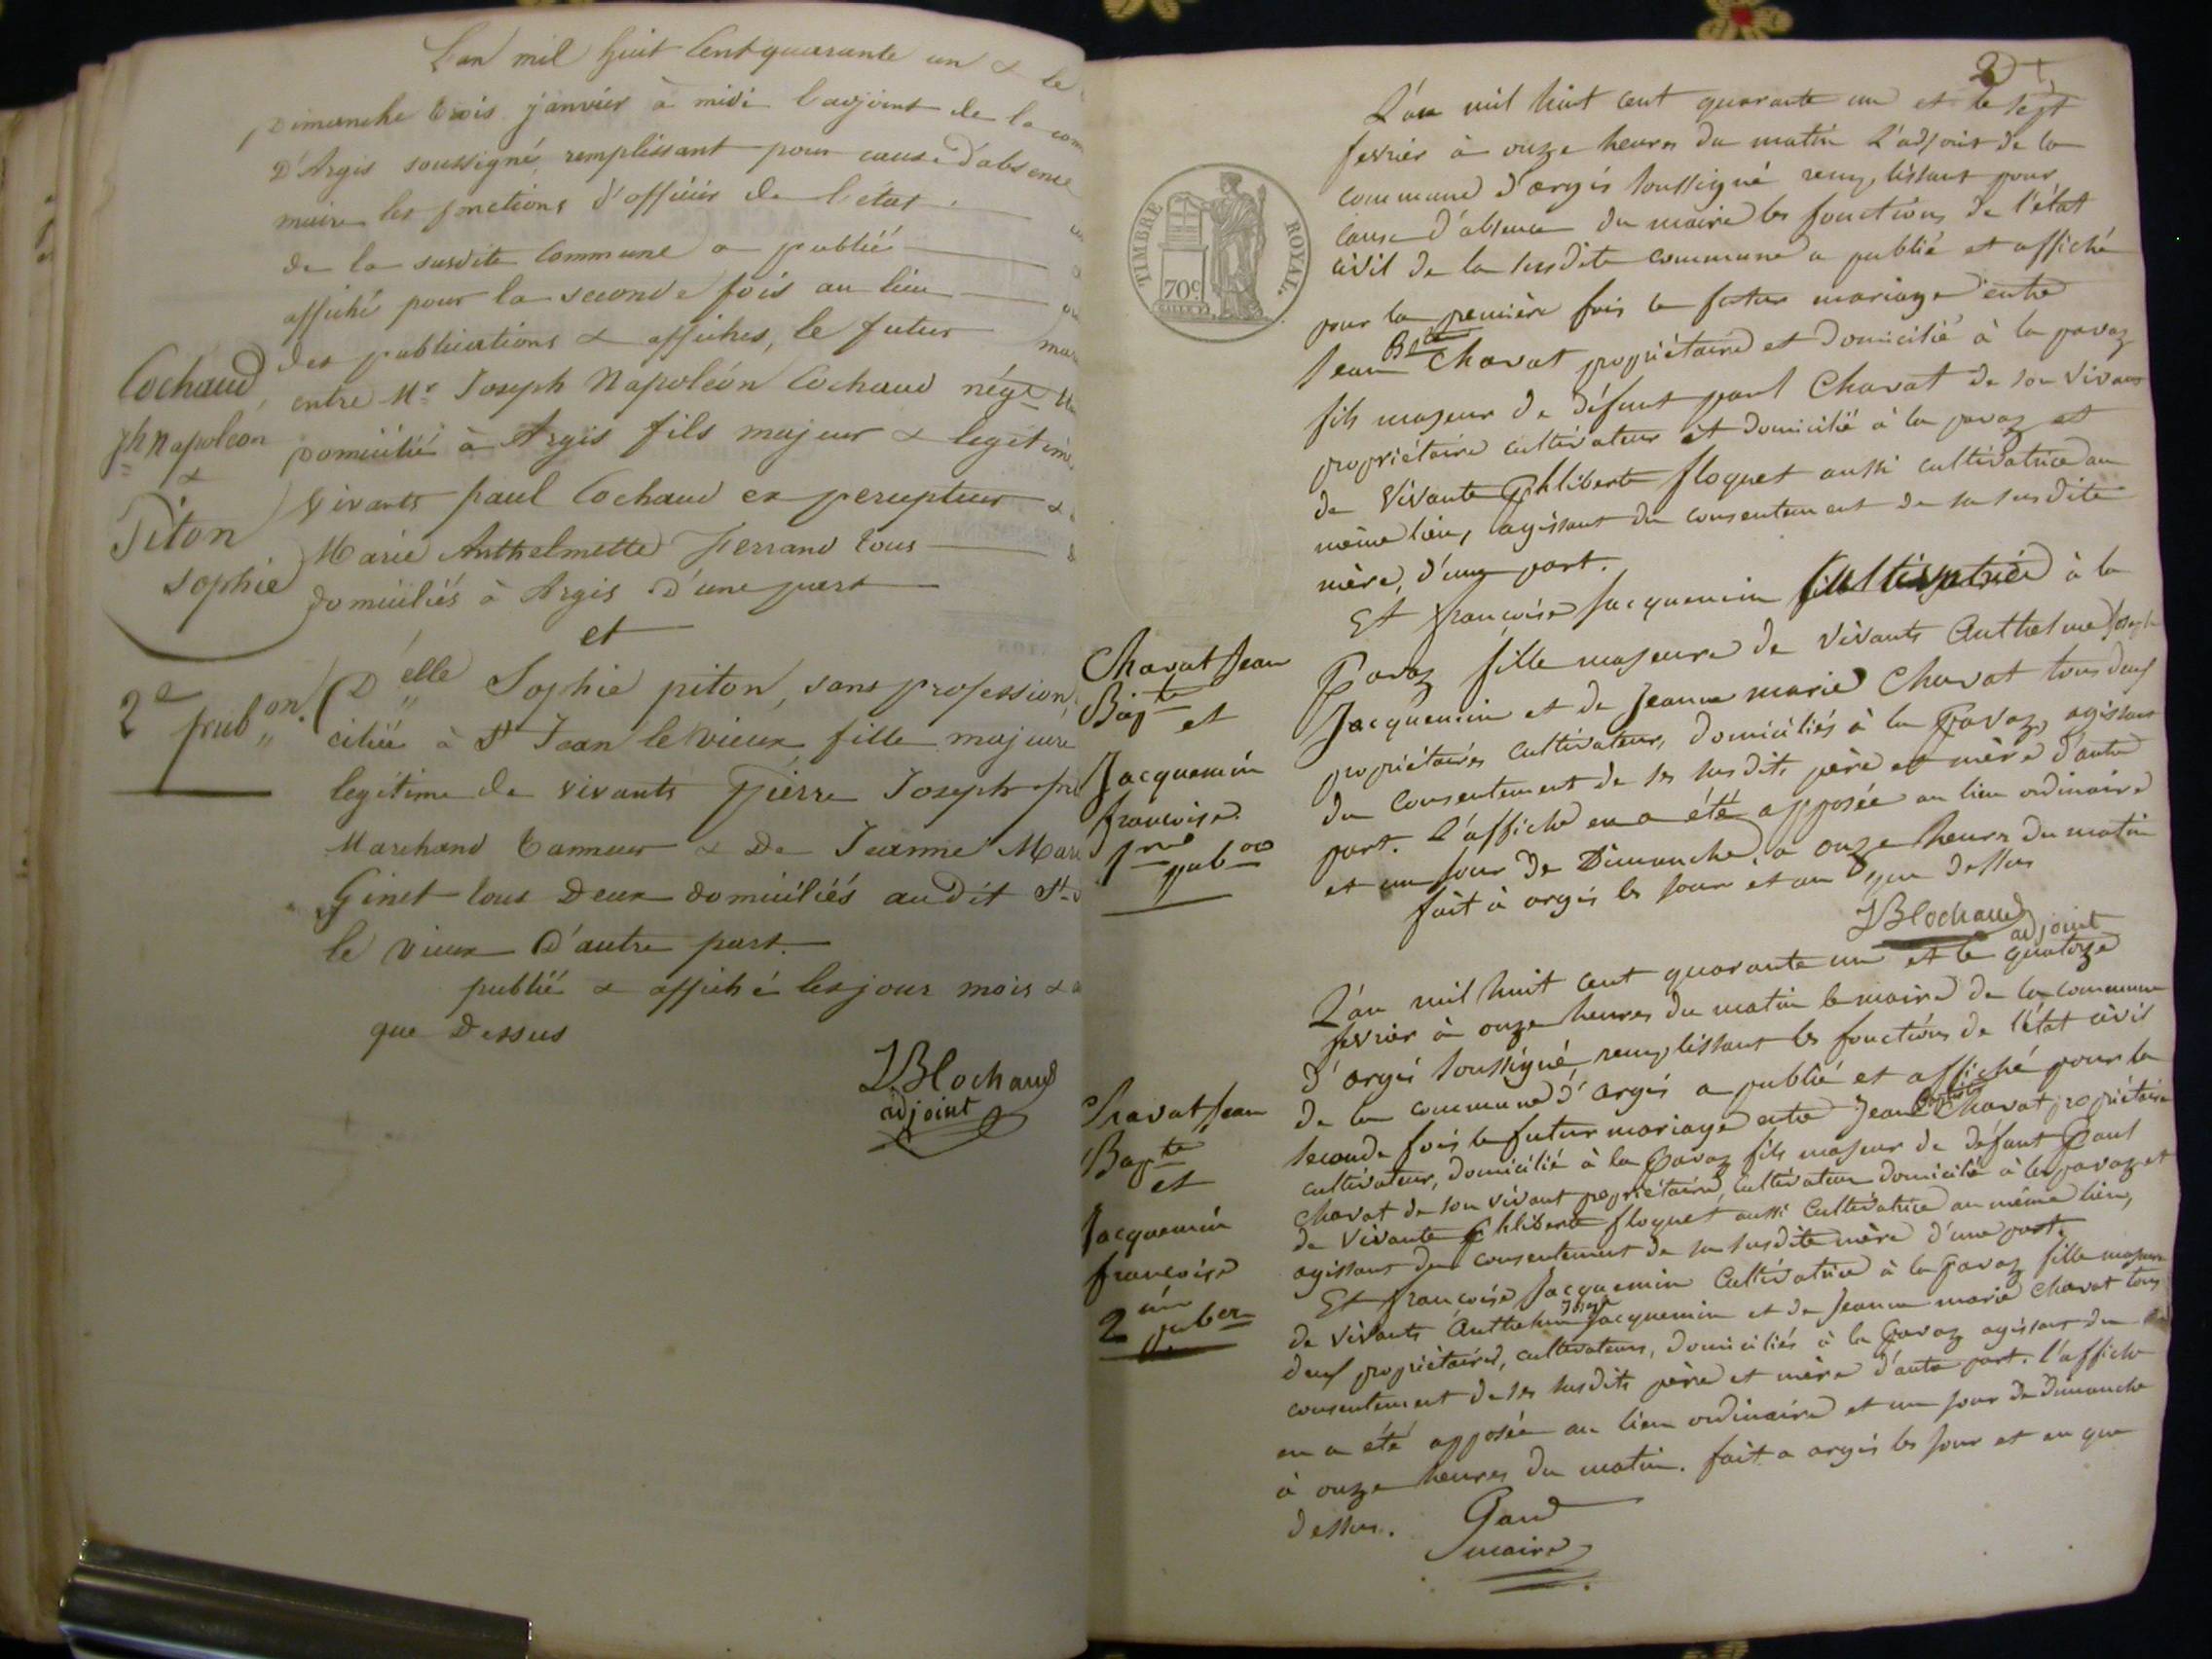 L'an mil huit Cent quarante un & le
Dimanche trois janvier à midi l'adjoint de la com
D'Argis soussigné, remplissant pour cause d'absence
maire les fonctions d'officier de l'état
de la susdite Commune a publié
affiché pour la seconde fois au lieu
des publications & affiches, le futur
entre Mr Joseph Napoléon Cochaud négt
domicilié à Argis fils majeur & legitime
vivants paul Cochaud ex percepteur &
Marie Anthelmette Ferrand tous
domiciliés à Argis D'une part
et
Delle Sophie piton, sans profession,
ciliée à St Jean le vieux fille majeure
legitime de vivants Pierre Joseph
Marchand tanneur & De Jeanne Mari
Ginet tous Deux domiciliés audit St
le vieux D'autre part.
publié & affiché les jour mois &
que Dessus
JB Cochaud
adjoint
Cochaud
jh Napoléon
&
Piton
Sophie
2e pubon
2
TIMBRE ROYAL.
70c
L'an mil huit cent quarante un et le sept
fevrier à onze heures du matin L'adjoint de la
commune d'argis soussigné remplissant pour
cause d'absence du maire les fonctions de l'état
civil de la susdite commune a publié et affiché
pour la première fois le futur mariage entre
Jean Bte Chavat propriétaire et domicilié à la pavaz
fils majeur de défunt paul Chavat de son vivant
propriétaire cultivateur et domicilié à la pavaz et
de vivante Philiberte floquet aussi cultivatrice au
même lieu, agissant du consentement de sa susdite
mère, d'une part.
Et françoise Jacquemin Cultivatrice à la
Pavaz fille majeure de vivants Anthelme Joseph
Jacquemin et de Jeanne marie Chavat tous deux
propriétaires cultivateurs, domiciliés à la Pavaz, agissant
du consentement de ses susdits père et mère d'autre
part. L'affiche en a été apposée au lieu ordinaire
et un jour de Dimanche, à onze heures du matin
fait à argis les jour et an que dessus
JB Cochaud
adjoint
Chavat Jean
Bapte
et
Jacquemin
françoise
1re pubon
L'an mil huit cent quarante un et le quatorze
fevrier à onze heures du matin le maire de la commune
d'argis soussigné, remplissant les fonctions de l'état civil
de la commune d'argis a publié et affiché pour la
seconde fois le futur mariage entre Jean Baptiste Chavat propriétaire
cultivateur, domicilié à la Pavaz fils majeur de défunt Paul
Chavat de son vivant propriétaire, cultivateur domicilié à la pavaz et
de vivante Philiberte floquet aussi Cultivatrice au même lieu,
agissant du consentement de sa susdite mère d'une part.
Et françoise Jacquemin Cultivatrice à la Pavaz fille majeure
de vivants Anthelme Joseph Jacquemin et de Jeanne marie Chavat tous
deux propriétaires, cultivateurs, domiciliés à la Pavaz agissant du
consentement de ses susdits père et mère d'autre part. l'affiche
en a été apposée au lieu ordinaire et un jour de dimanche
à onze heures du matin. fait a argis les jour et an que
dessus.
maire
Chavat Jean
Bapte
et
Jacquemin
françoise
2me puben